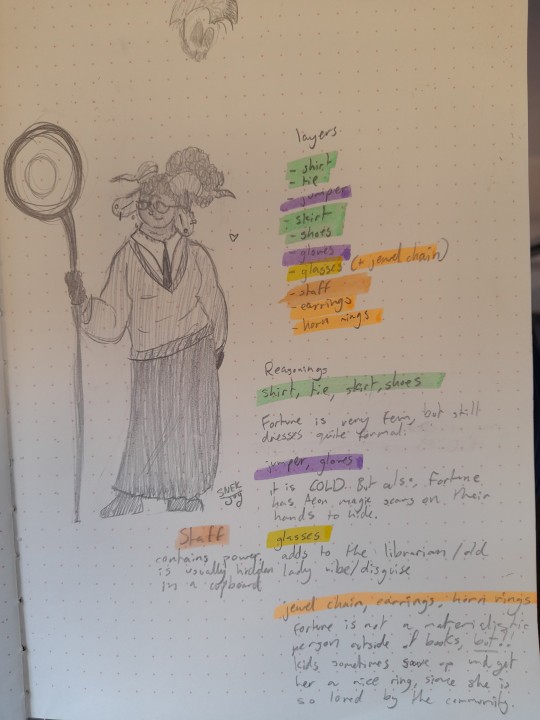 layers
- shirt
- tie
- jumper
- skirt
- shoes
- gloves
- glasses (+ jewel chain)
- staff
- earrings
- horn rings
Reasonings
shirt, tie, skirt, shoes
Fortune is very fem, but still
dresses quite formal.
jumper, gloves
it is COLD. But also, Fortune
has Aeon magic scars on their
hands to hide.
SNEK
Staff
contains power,
is usually hidden
in a cupboard
glasses
adds to the librarian/old
lady vibe/disguise
jewel chain, earrings, horn rings
Fortune is not a materialistic
person outside of books, but!!
kids sometimes save up and get
her a nice ring, since she is
so loved by the community.